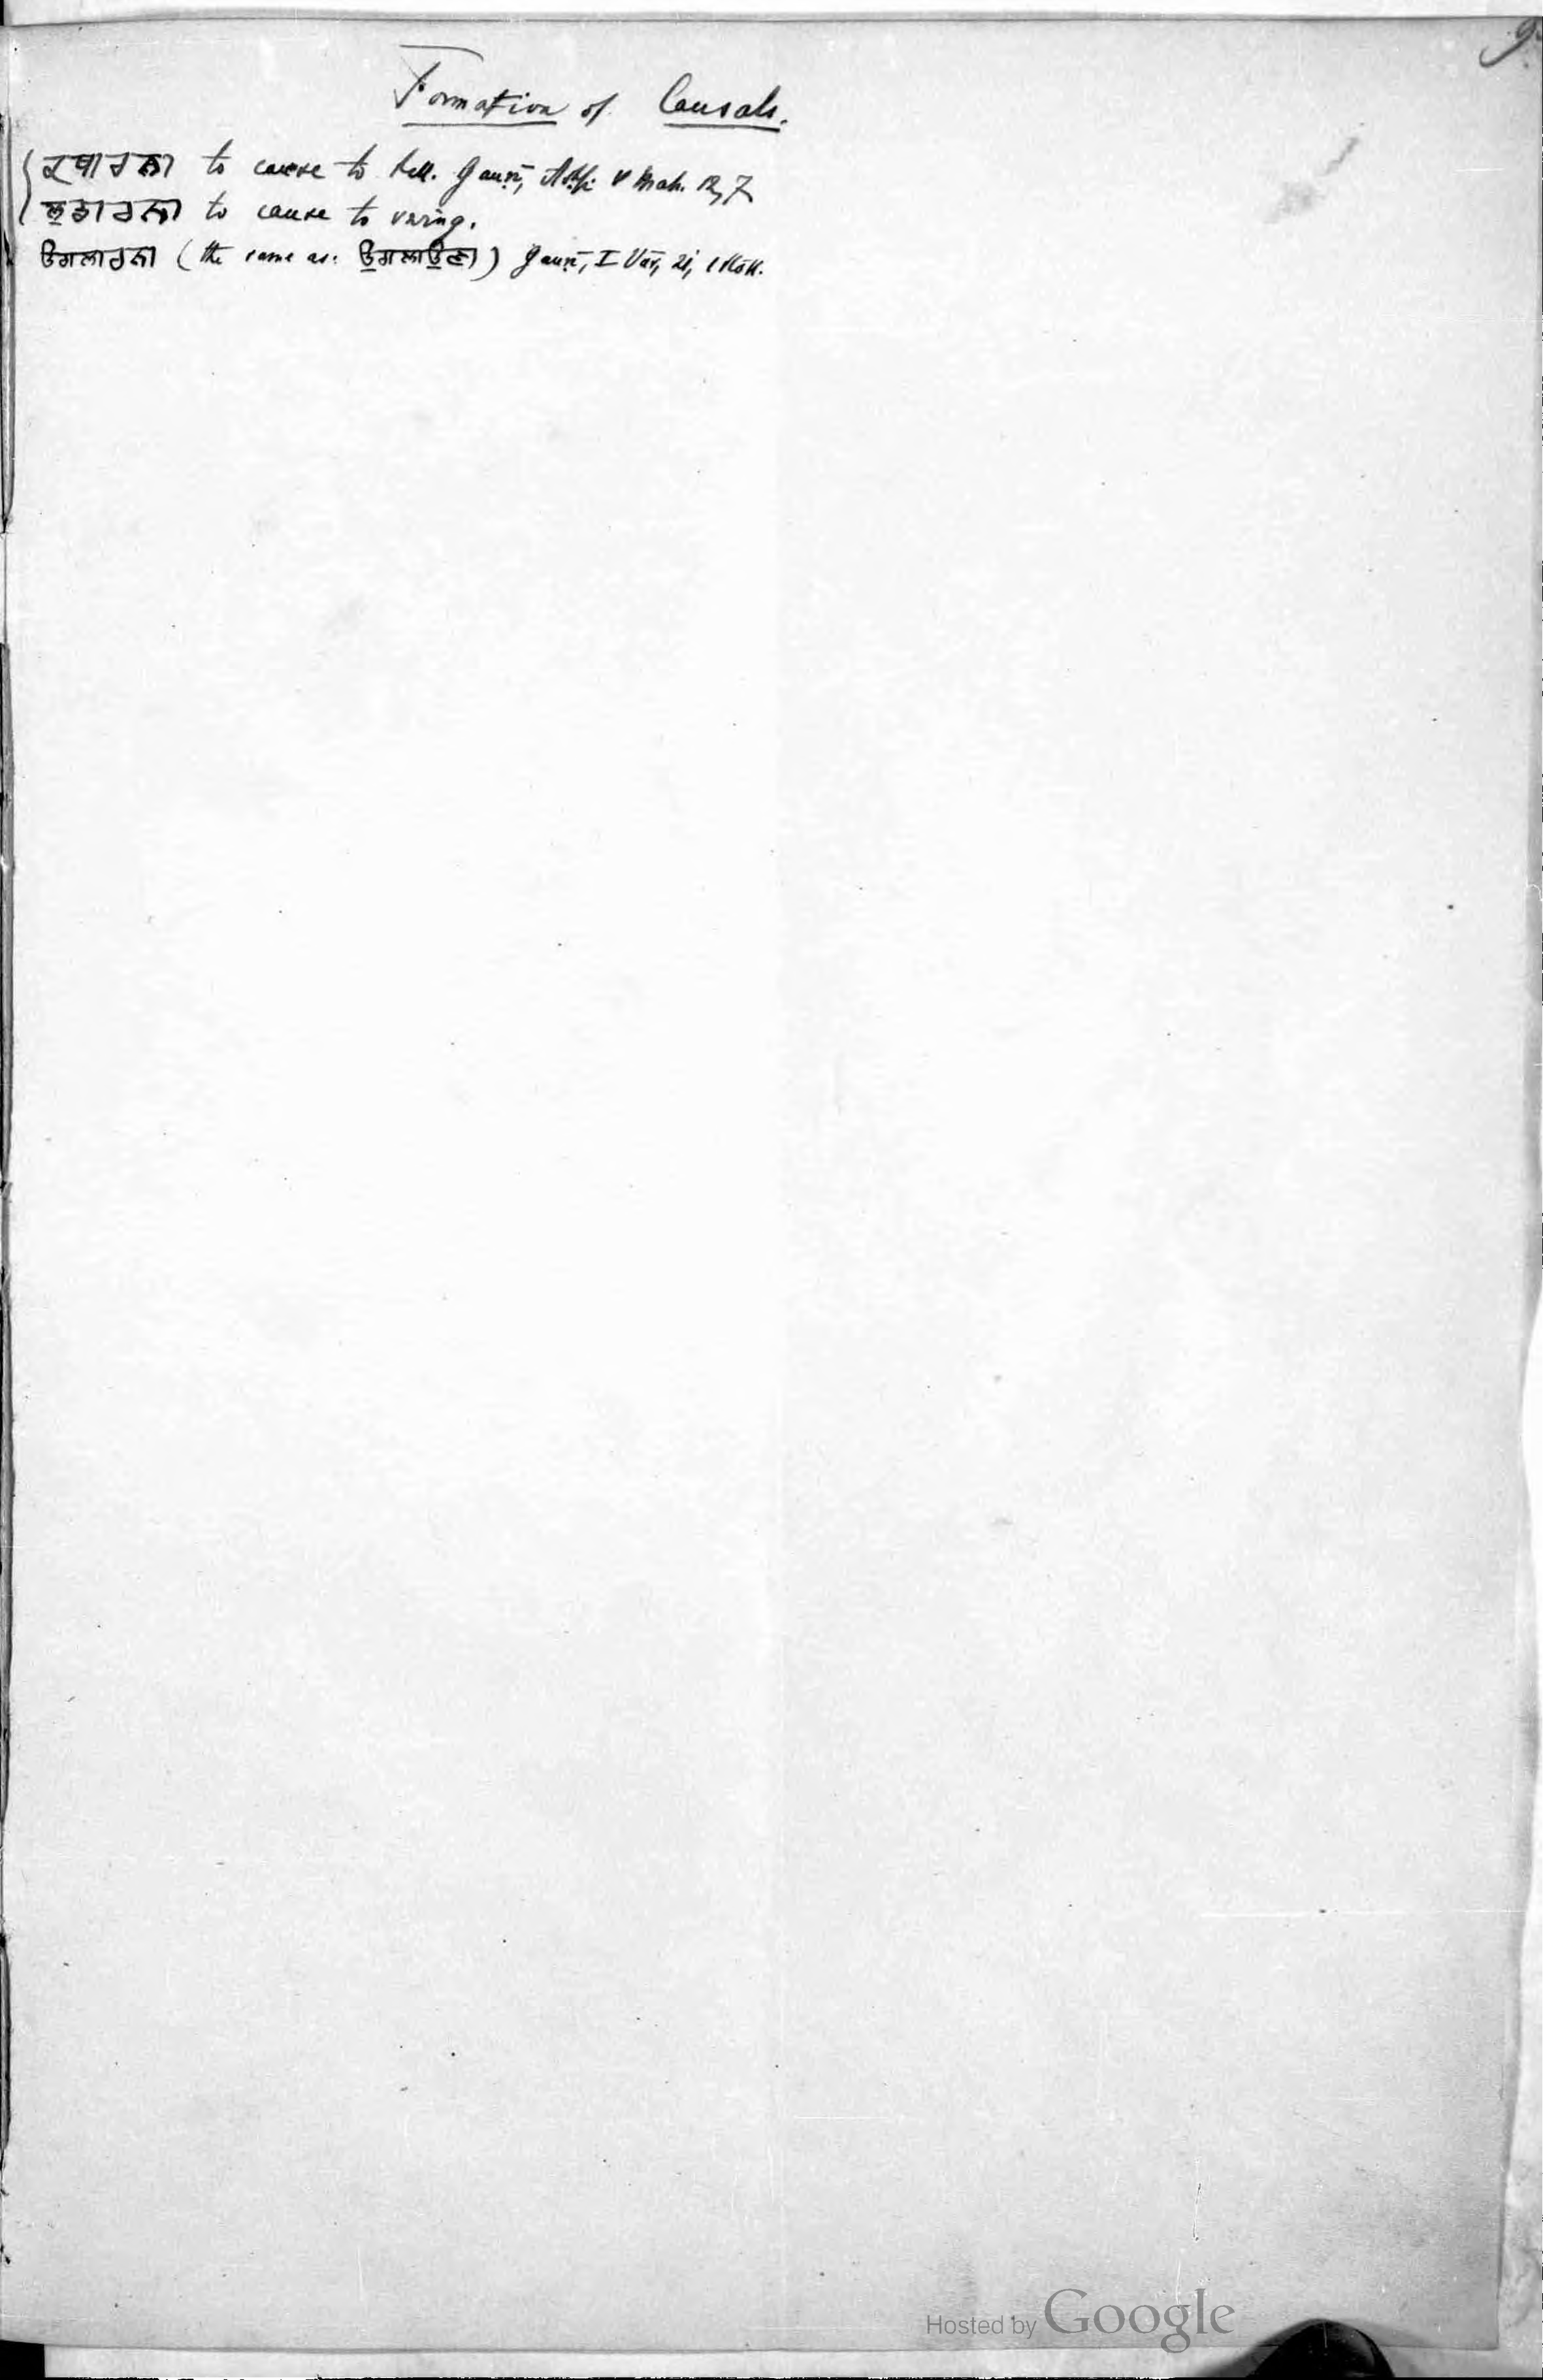 9
Formation of Causals.
ਕਥਾਰਨਾ to cause to tell. Gauṛī, Aṣṭp. V Mah. 12, 7
ਲੁਡਾਰਨਾ to cause to swing.
ਉਗਲਾਰਨਾ (the same as: ਉਗਲਾਉਣਾ) Gauṛī, I Vār, 21, 1 Slōk.
Hosted by Google